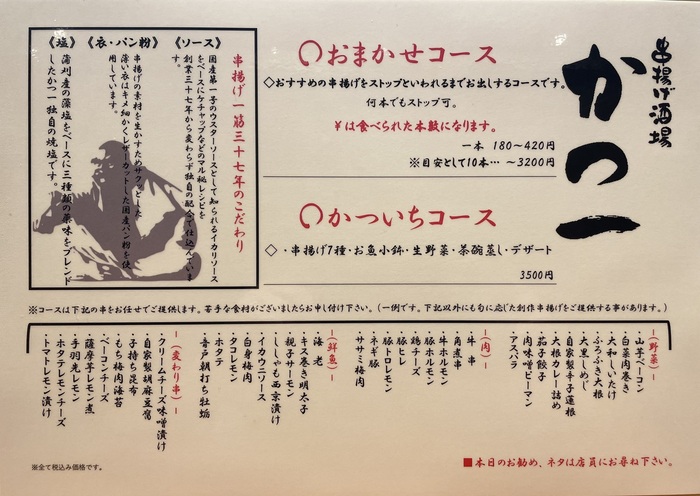 串揚げ酒場
かつ一
〇おまかせコース
◇おすすめの串揚げをストップといわれるまでお出しするコースです。
何本でもストップ可。
¥は食べられた本数になります。
一本 180～420円
※目安として10本… ～3200円
〇かついちコース
◇・串揚げ7種・お魚小鉢・生野菜・茶碗蒸し・デザート
3500円
串揚げ一筋三十七年のこだわり
《ソース》
国産第一号のウスターソースとして知られるイカリソース
をベースにケチャップなどのマル秘レシピを
創業三十七年から変わらず独自の配合で仕込んでいま
す。
《衣・パン粉》
串揚げの素材を生かすためサクッとした
薄い衣はキメ細かくレザーカットした国産パン粉を使
用しています。
《塩》
蒲刈産の藻塩をベースに三種類の薬味をブレンド
したかつ一独自の焼塩です。
※コースは下記の串をお任せでご提供します。苦手な食材がございましたらお申し付け下さい。（一例です。下記以外にも旬に応じた創作串揚げをご提供する事があります。）
―(野菜)―
・山芋ベーコン
・白菜肉巻き
・大和しいたけ
・ふろふき大根
・大黒しめじ
・自家製辛子蓮根
・大根カレー詰め
・茄子餃子
・肉味噌ピーマン
・アスパラ
―(肉)―
・牛串
・角煮串
・牛ホルモン
・豚ホルモン
・鶏チーズ
・豚ヒレ
・豚トロレモン
・ネギ豚
・ササミ梅肉
―(鮮魚)―
・海老
・キス巻き明太子
・親子サーモン
・ししゃも西京漬け
・イカウニソース
・白身梅肉
・タコレモン
・ホタテ
・音戸朝打ち牡蠣
―(変わり串)―
・クリームチーズ味噌漬け
・自家製胡麻豆腐
・子持ち昆布
・もち梅肉海苔
・ベーコンチーズ
・薩摩芋レモン煮
・手羽先レモン
・ホタテレモンチーズ
・トマトレモン漬け
■本日のお勧め、ネタは店員にお尋ね下さい。
※全て税込み価格です。